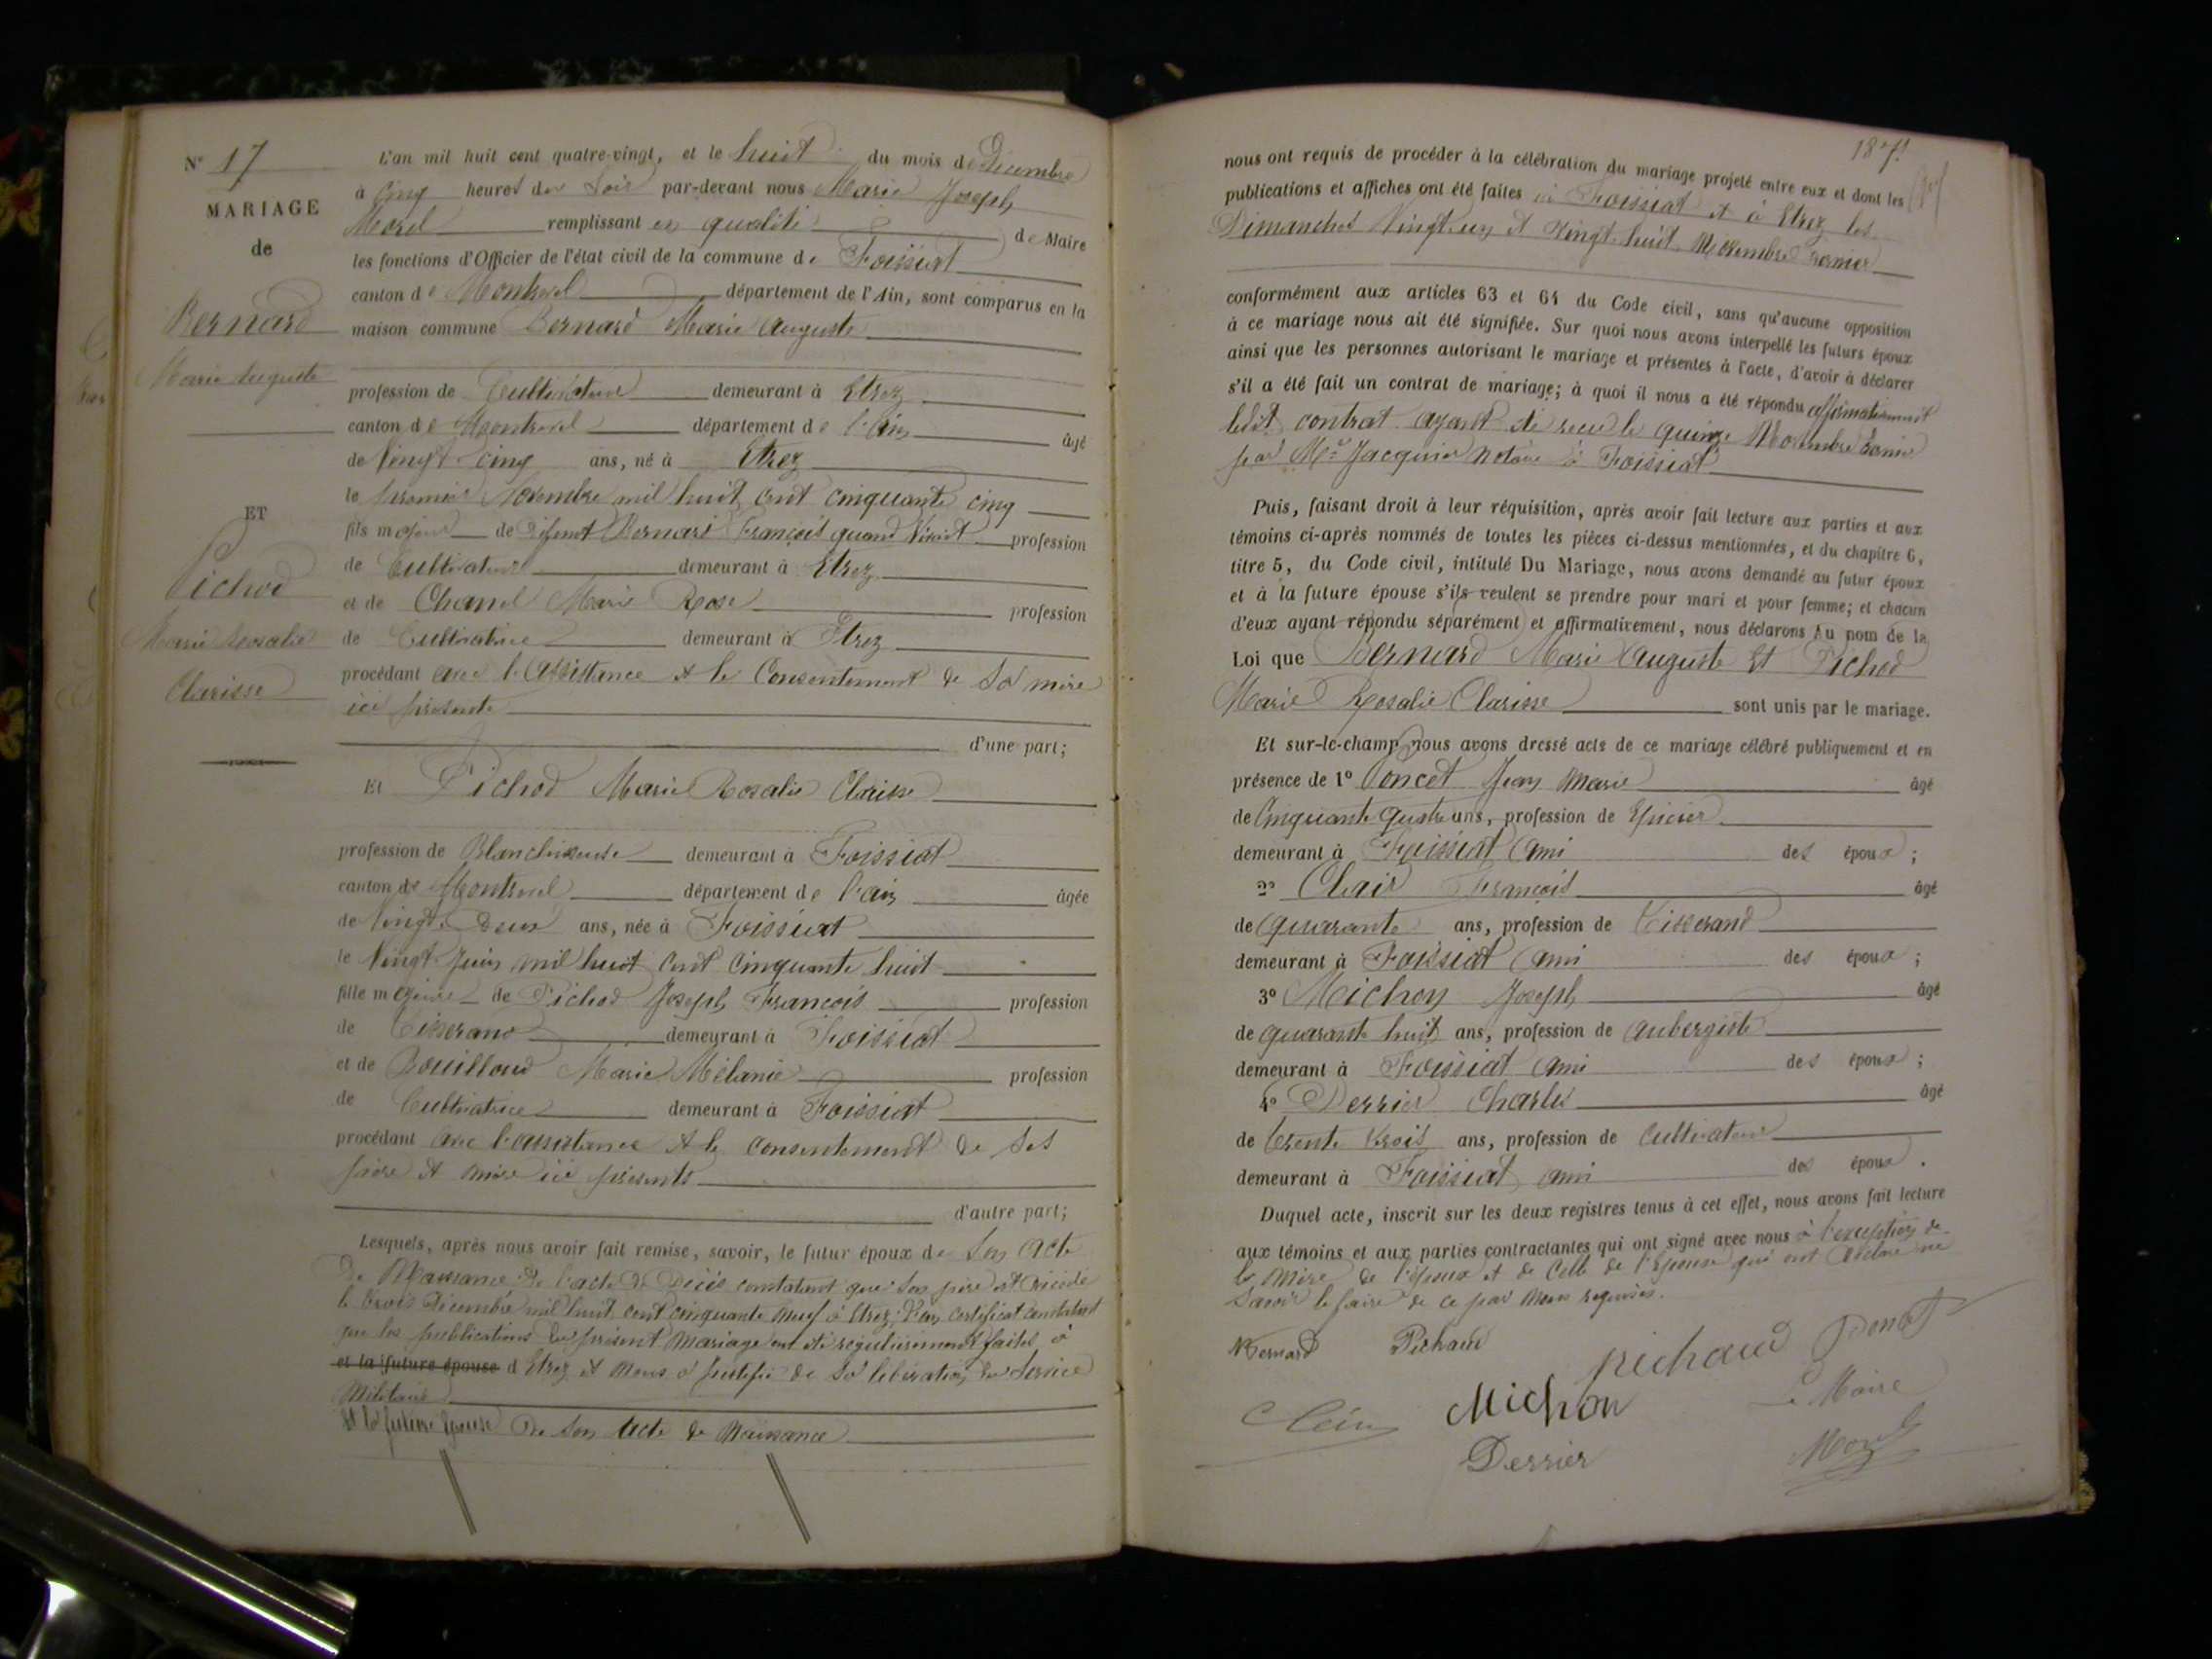 N° 17
MARIAGE
de
Bernard
Marie Auguste
ET
Pichod
Marie Rosalie
Clarisse
L'an mil huit cent quatre-vingt, et le huit du mois de Décembre
à cinq heures du soir par-devant nous Marie Joseph
Morel remplissant en qualité de Maire
les fonctions d'Officier de l'état civil de la commune de Foissiat
canton de Montrevel département de l'Ain, sont comparus en la
maison commune Bernard Marie Auguste
profession de Cultivateur demeurant à Etrez
canton de Montrevel département de l'Ain âgé
de Vingt cinq ans, né à Etrez
le premier Novembre mil huit cent cinquante cinq
fils majeur de Défunt Bernard François quand Vivait profession
de Cultivateur demeurant à Etrez
et de Chanel Marie Rose profession
de Cultivatrice demeurant à Etrez
procédant avec l'assistance et le Consentement de sa mère
ici présente
d'une part;
Et Pichod Marie Rosalie Clarisse
profession de Blanchisseuse demeurant à Foissiat
canton de Montrevel département de l'ain âgée
de Vingt Deux ans, née à Foissiat
le Vingt Juin mil huit cent cinquante huit
fille majeure de Pichod Joseph François profession
de Tisserand demeurant à Foissiat
et de Bouilloud Marie Mélanie profession
de Cultivatrice demeurant à Foissiat
procédant avec l'assistance et le consentement de ses
père et mère ici présents
d'autre part;
Lesquels, après nous avoir fait remise, savoir, le futur époux de son acte
de Naissance de l'acte de Décès constatant que son père est décédé
le trois Décembre mil huit cent cinquante neuf à Etrez, d'un certificat constatant
que les publications du présent mariage ont été régulièrement faites à
et la future épouse d Etrez et Nous a justifié de sa libération du Service
Militaire
Et la future épouse De son acte de Naissance
187
nous ont requis de procéder à la célébration du mariage projeté entre eux et dont les
publications et affiches ont été faites à Foissiat et à Etrez les
Dimanches Vingt un et Vingt huit Novembre dernier
conformément aux articles 63 et 64 du Code civil, sans qu'aucune opposition
à ce mariage nous ait été signifiée. Sur quoi nous avons interpellé les futurs époux
ainsi que les personnes autorisant le mariage et présentes à l'acte, d'avoir à déclarer
s'il a été fait un contrat de mariage; à quoi il nous a été répondu affirmativement
ledit contrat ayant été recu le quinze Novembre dernier
par Me Jacquier Notaire à Foissiat
Puis, faisant droit à leur réquisition, après avoir fait lecture aux parties et aux
témoins ci-après nommés de toutes les pièces ci-dessus mentionnées, et du chapitre 6,
titre 5, du Code civil, intitulé Du Mariage, nous avons demandé au futur époux
et à la future épouse s'ils veulent se prendre pour mari et pour femme; et chacun
d'eux ayant répondu séparément et affirmativement, nous déclarons Au nom de la
Loi que Bernard Marie Auguste Et Pichod
Marie Rosalie Clarisse sont unis par le mariage.
Et sur-le-champ nous avons dressé acte de ce mariage célébré publiquement et en
présence de 1° Poncet Jean Marie âgé
de Cinquante quatre ans, profession de Epicier
demeurant à Foissiat ami des époux;
2° Clair François âgé
de quarante ans, profession de Tisserand
demeurant à Foissiat ami des époux;
3° Michon Joseph âgé
de quarante huit ans, profession de aubergiste
demeurant à Foissiat ami des époux;
4° Derrier Charles âgé
de trente trois ans, profession de Cultivateur
demeurant à Foissiat ami des époux.
Duquel acte, inscrit sur les deux registres tenus à cet effet, nous avons fait lecture
aux témoins et aux parties contractantes qui ont signé avec nous à l'exception de
la Mère de l'époux et de Celle de l'Epouse qui ont déclaré ne
savoir le faire de ce par Nous requises.
Bernard Pichaud pichaud Poncet
Michon Le Maire
Derrier Morel